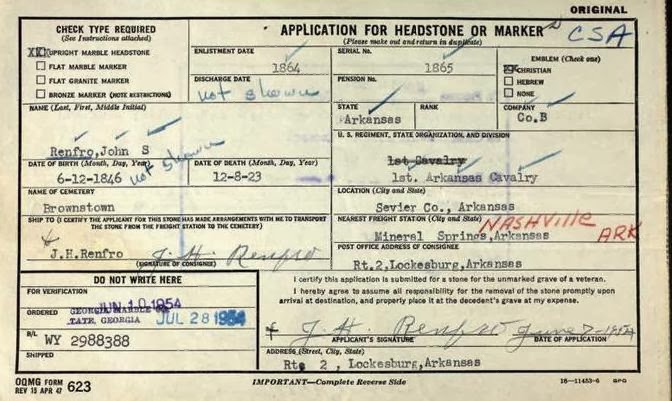 ORIGINAL
CHECK TYPE REQUIRED
(See Instructions attached)
XXX UPRIGHT MARBLE HEADSTONE
FLAT MARBLE MARKER
FLAT GRANITE MARKER
BRONZE MARKER (NOTE RESTRICTIONS)
APPLICATION FOR HEADSTONE OR MARKER
CSA
(Please make out and return in duplicate)
ENLISTMENT DATE
1864
SERIAL No.
1865
EMBLEM (Check one)
CHRISTIAN
HEBREW
NONE
DISCHARGE DATE
not shown
PENSION No.
STATE
Arkansas
RANK
COMPANY
Co.B
NAME (Last, First, Middle Initial)
Renfro,John S
U. S. REGIMENT, STATE ORGANIZATION, AND DIVISION
1st Cavalry
1st. Arkansas Cavalry
DATE OF BIRTH (Month, Day, Year)
6-12-1846
not shown
DATE OF DEATH (Month, Day, Year)
12-8-23
NAME OF CEMETERY
Brownstown
LOCATION (City and State)
Sevier Co., Arkansas
SHIP TO (I CERTIFY THE APPLICANT FOR THIS STONE HAS MADE ARRANGEMENTS WITH ME TO TRANSPORT
THE STONE FROM THE FREIGHT STATION TO THE CEMETERY)
J.H.Renfro
J. H. Renfro
(SIGNATURE OF CONSIGNEE)
NEAREST FREIGHT STATION (City and State)
Mineral Springs,Arkansas
NASHVILLE
ARK
POST OFFICE ADDRESS OF CONSIGNEE
Rt.2,Lockesburg,Arkansas
DO NOT WRITE HERE
FOR VERIFICATION
JUN 10 1954
ORDERED
GEORGIA MARBLE
TATE, GEORGIA
JUL 28 1954
B/L
WY 2988388
SHIPPED
I certify this application is submitted for a stone for the unmarked grave of a veteran.
I hereby agree to assume all responsibility for the removal of the stone promptly upon
arrival at destination, and properly place it at the decedent's grave at my expense.
J. H. Renfro June 7-1954
APPLICANT'S SIGNATURE
DATE OF APPLICATION
ADDRESS (Street, City, State)
Rte 2 , Lockesburg,Arkansas
OQMG FORM
REV 15 APR 47
623
IMPORTANT—Complete Reverse Side
16—11453-6 GPO